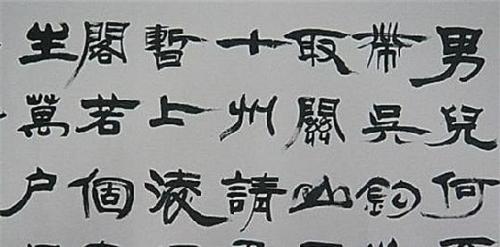 男兒何
帶吳鈎
取關山
十州請
暫上淩
閣若個
生萬户